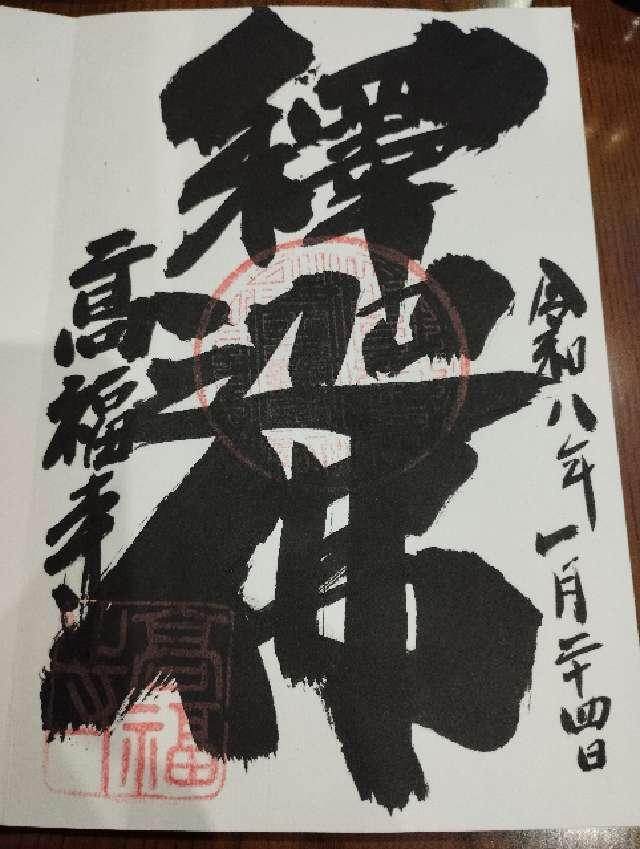 令和八年一月二十四日
釋迦佛
高福寺
高福